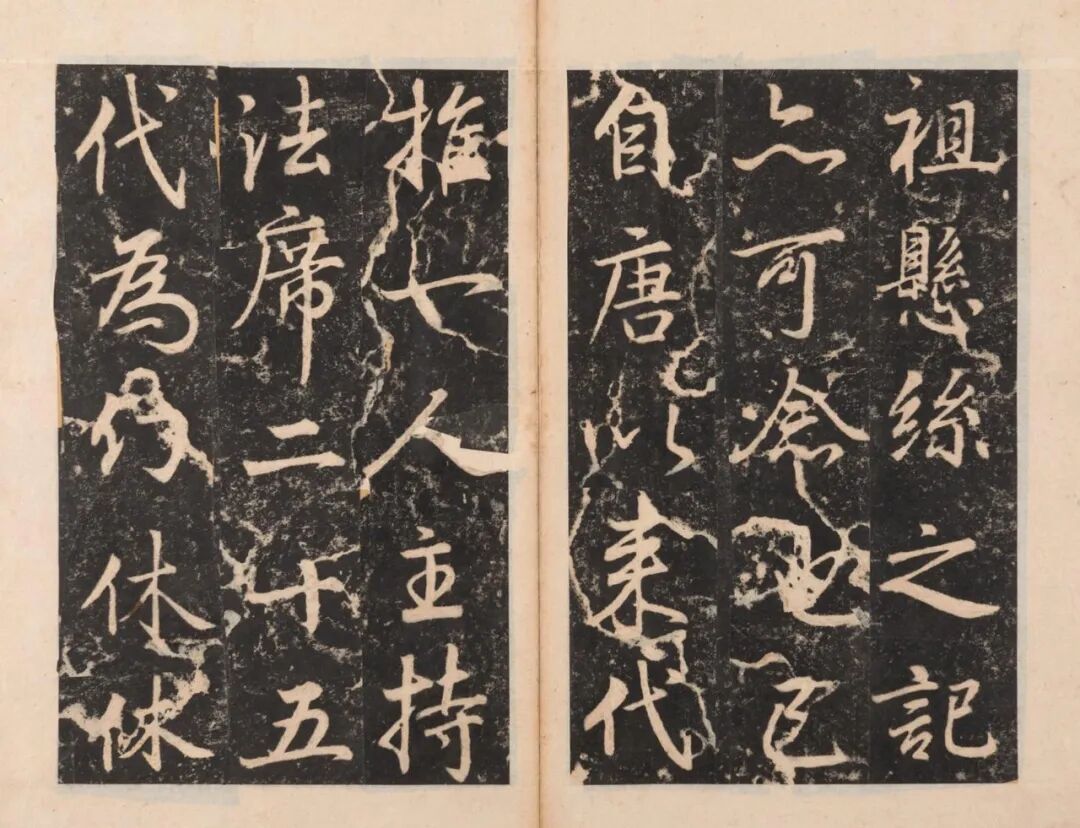 祖懸絲之記
亦可念也已
自唐以來代
推一人主持
法席二十五
代為行休休